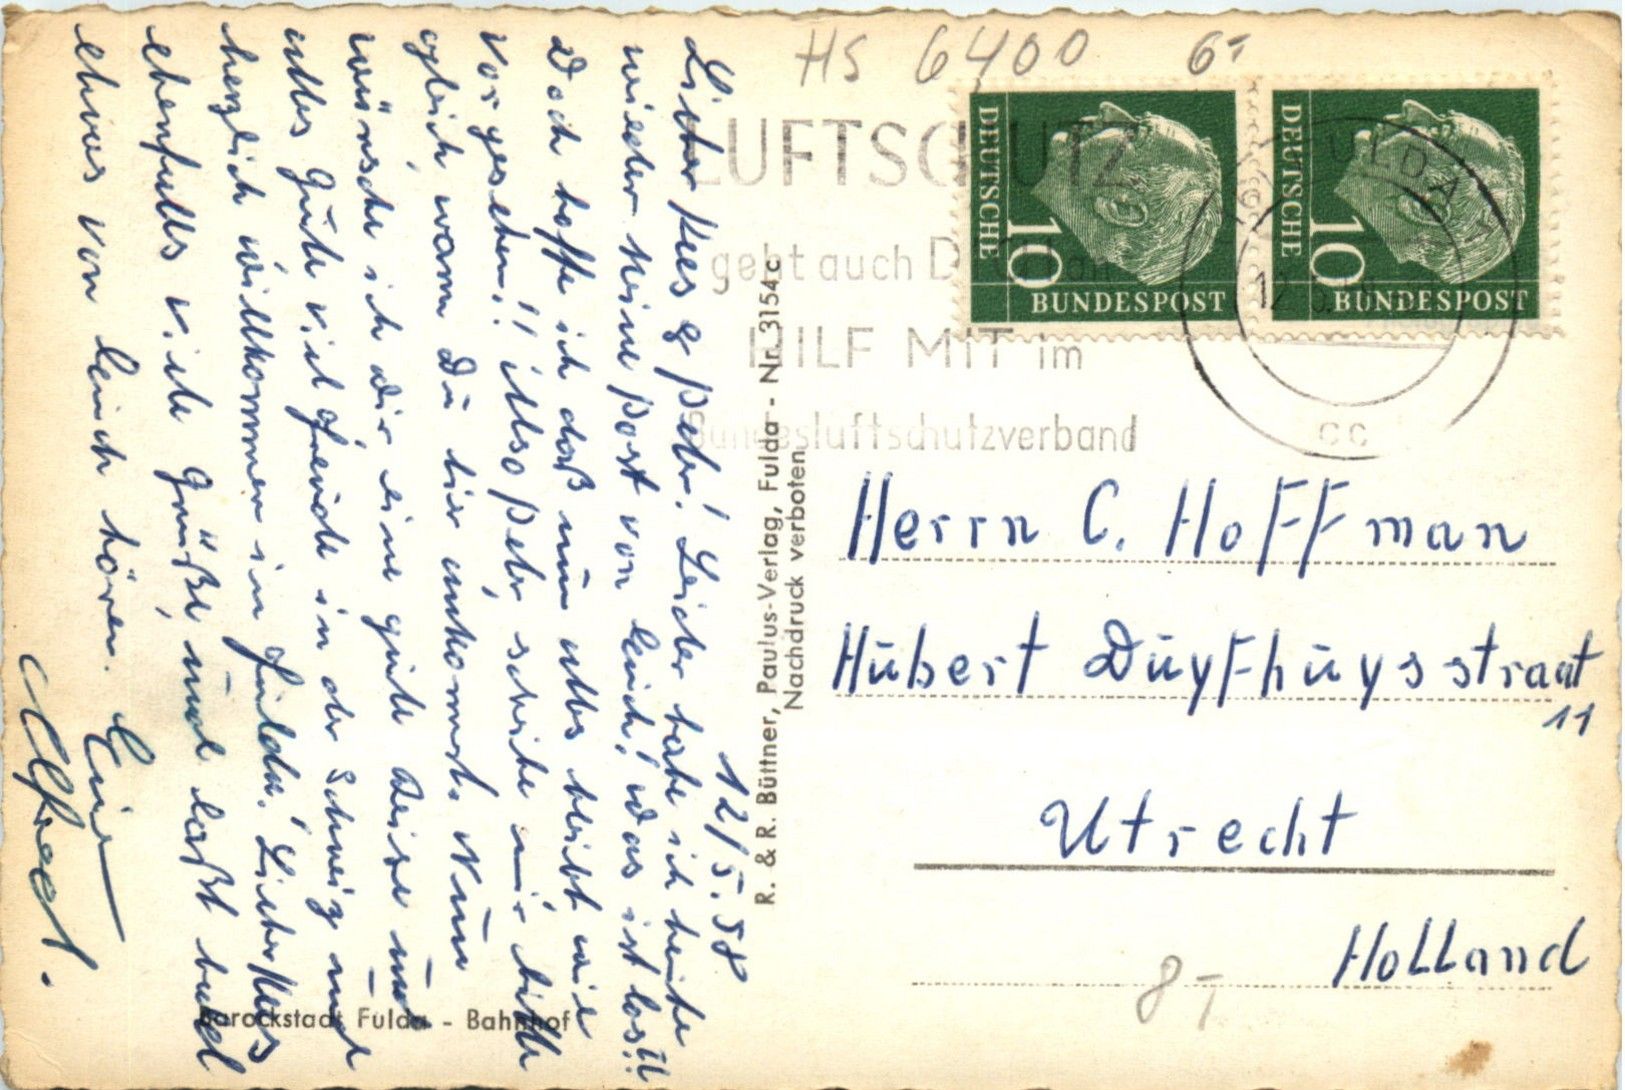 12/5.58
Lieber Kees & Peter! Leider habe ich heute
wieder keine Post von Euch! Was ist los!!
Doch hoffe ich daß nun alles bleibt wie
vorgesehen!! Also Peter schreibe mir bitte
gleich, wann Du hier ankommst. Nun
wünsche ich Dir eine gute Reise und
alles Gute viel Freude in der Schweiz und
herzlich willkommen in Fulda! Lieber Kees
ebenfalls viele Grüße, und laßt bald
etwas von Euch hören. Euer
Alfred.
Barockstadt Fulda - Bahnhof
R. & R. Büttner, Paulus-Verlag, Fulda - Nr. 3154 c
Nachdruck verboten
HS 6400 6-
LUFTSCHUTZ
geht auch Dich an
HILF MIT im
Bundesluftschutzverband
DEUTSCHE
10
BUNDESPOST
DEUTSCHE
10
BUNDESPOST
(16) FULDA 1
12.5.
cc
Herrn C. Hoffman
Hubert Duyfhuysstraat
11
Utrecht
Holland
8,-